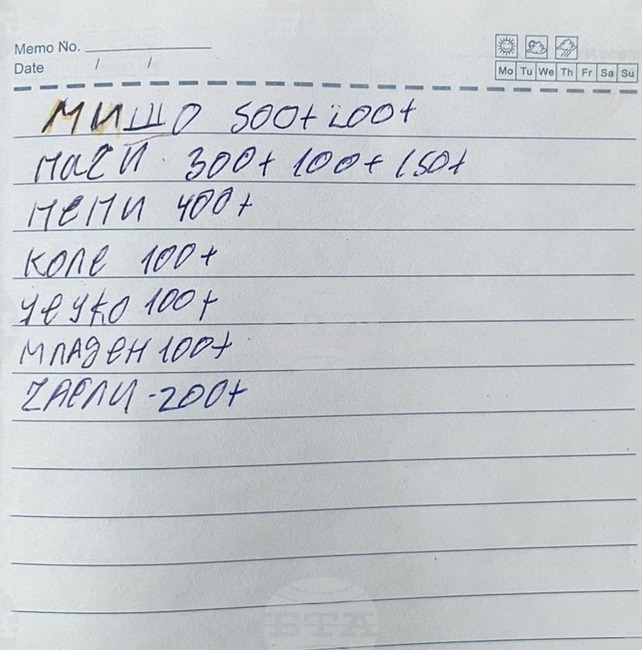 Memo No.
Date / /
Mo Tu We Th Fr Sa Su
МИШО 500+ 200+
НАСИ 300+ 100+ 150+
НЕЛИ 400+
КОЛЕ 100+
ЧЕЧКО 100+
МЛАДЕН 100+
200+
БТА